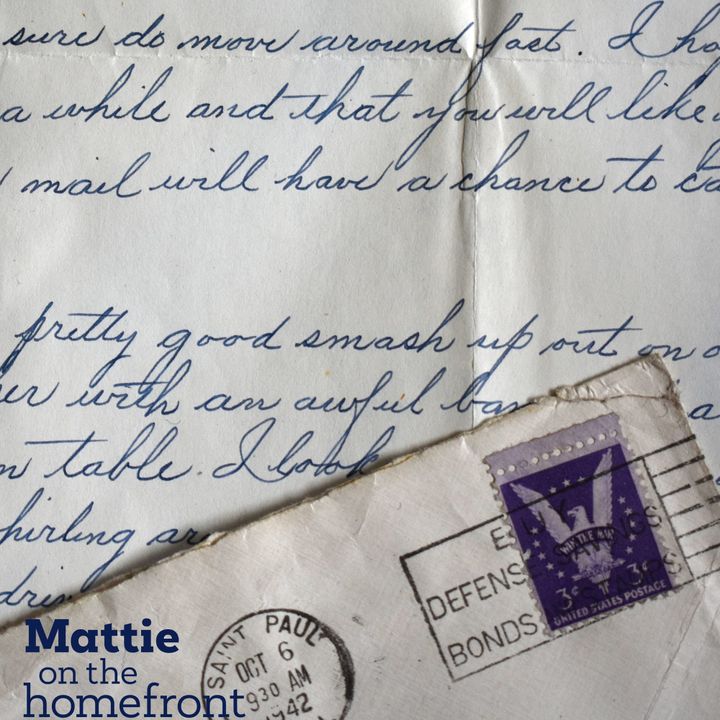 sure do move around fast. I ho
a while and that you will like
mail will have a chance to ca
pretty good smash up out on
er with an awful ban
n table. I look
hirling ar
drin
SAINT PAUL
OCT 6
930 AM
1942
BUY
DEFENSE SAVINGS
BONDS & STAMPS
WIN THE WAR
3¢ 3¢
UNITED STATES POSTAGE
Mattie
on the
homefront